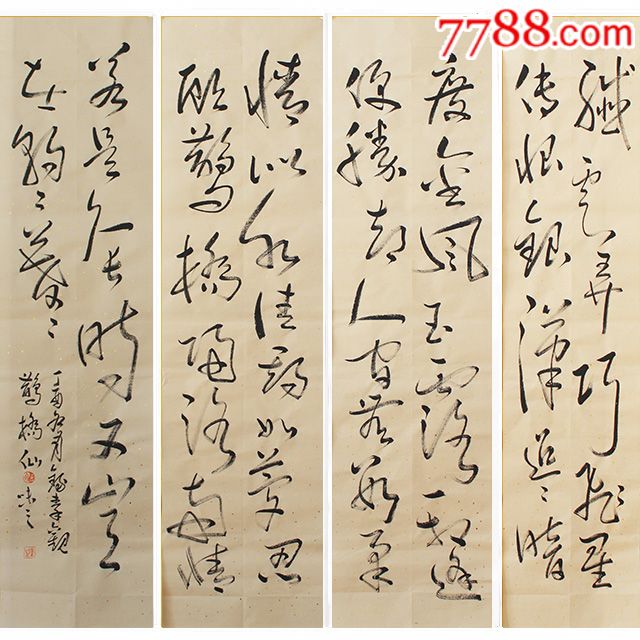 7788.com
纖雲弄巧飛星
傳恨銀漢迢々暗
度金風玉露一相逢
便勝却人間無數柔
情似水佳期如夢忍
顧鵲橋歸路兩情
若是久長時又豈
在朝々暮々
丁酉 月 錄秦觀
鵲橋仙 之